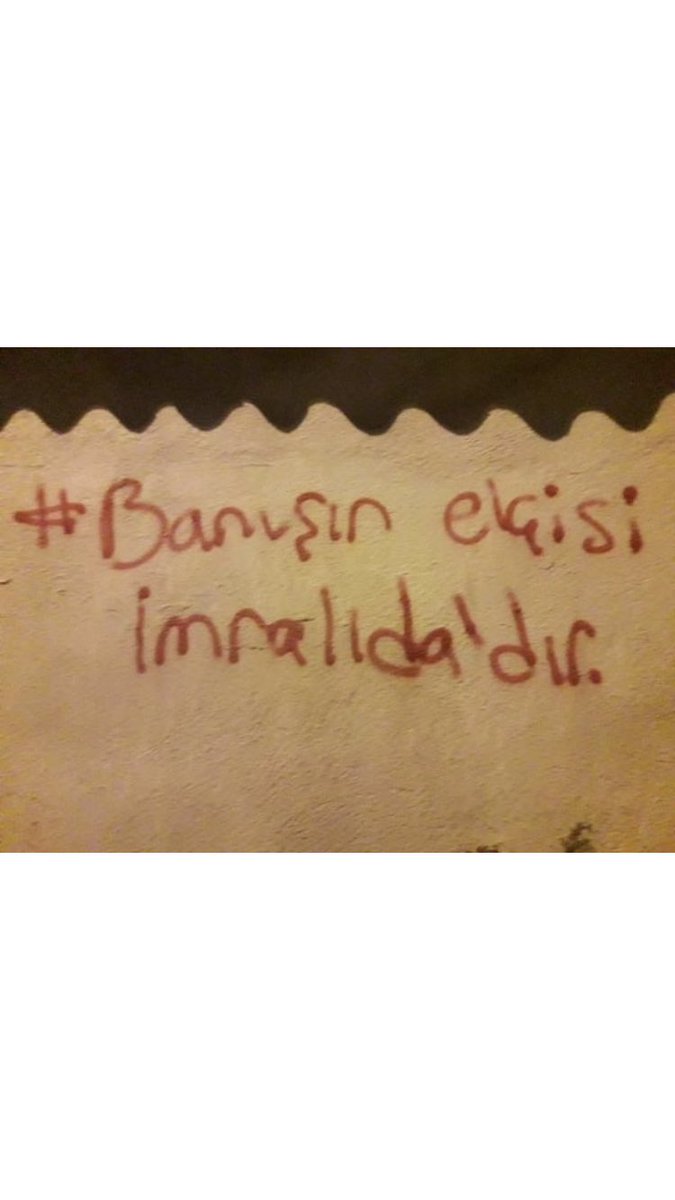 #Barışın elçisi
imralıda'dır.